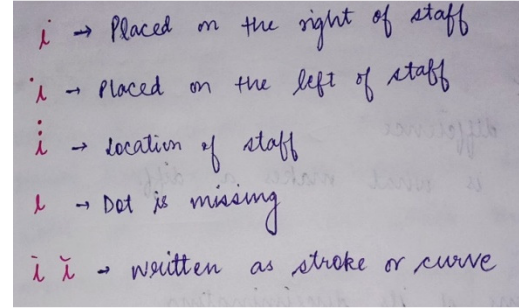 i → Placed on the right of staff
i → Placed on the left of staff
i → Location of staff
ı → Dot is missing
ī ĭ → written as stroke or curve